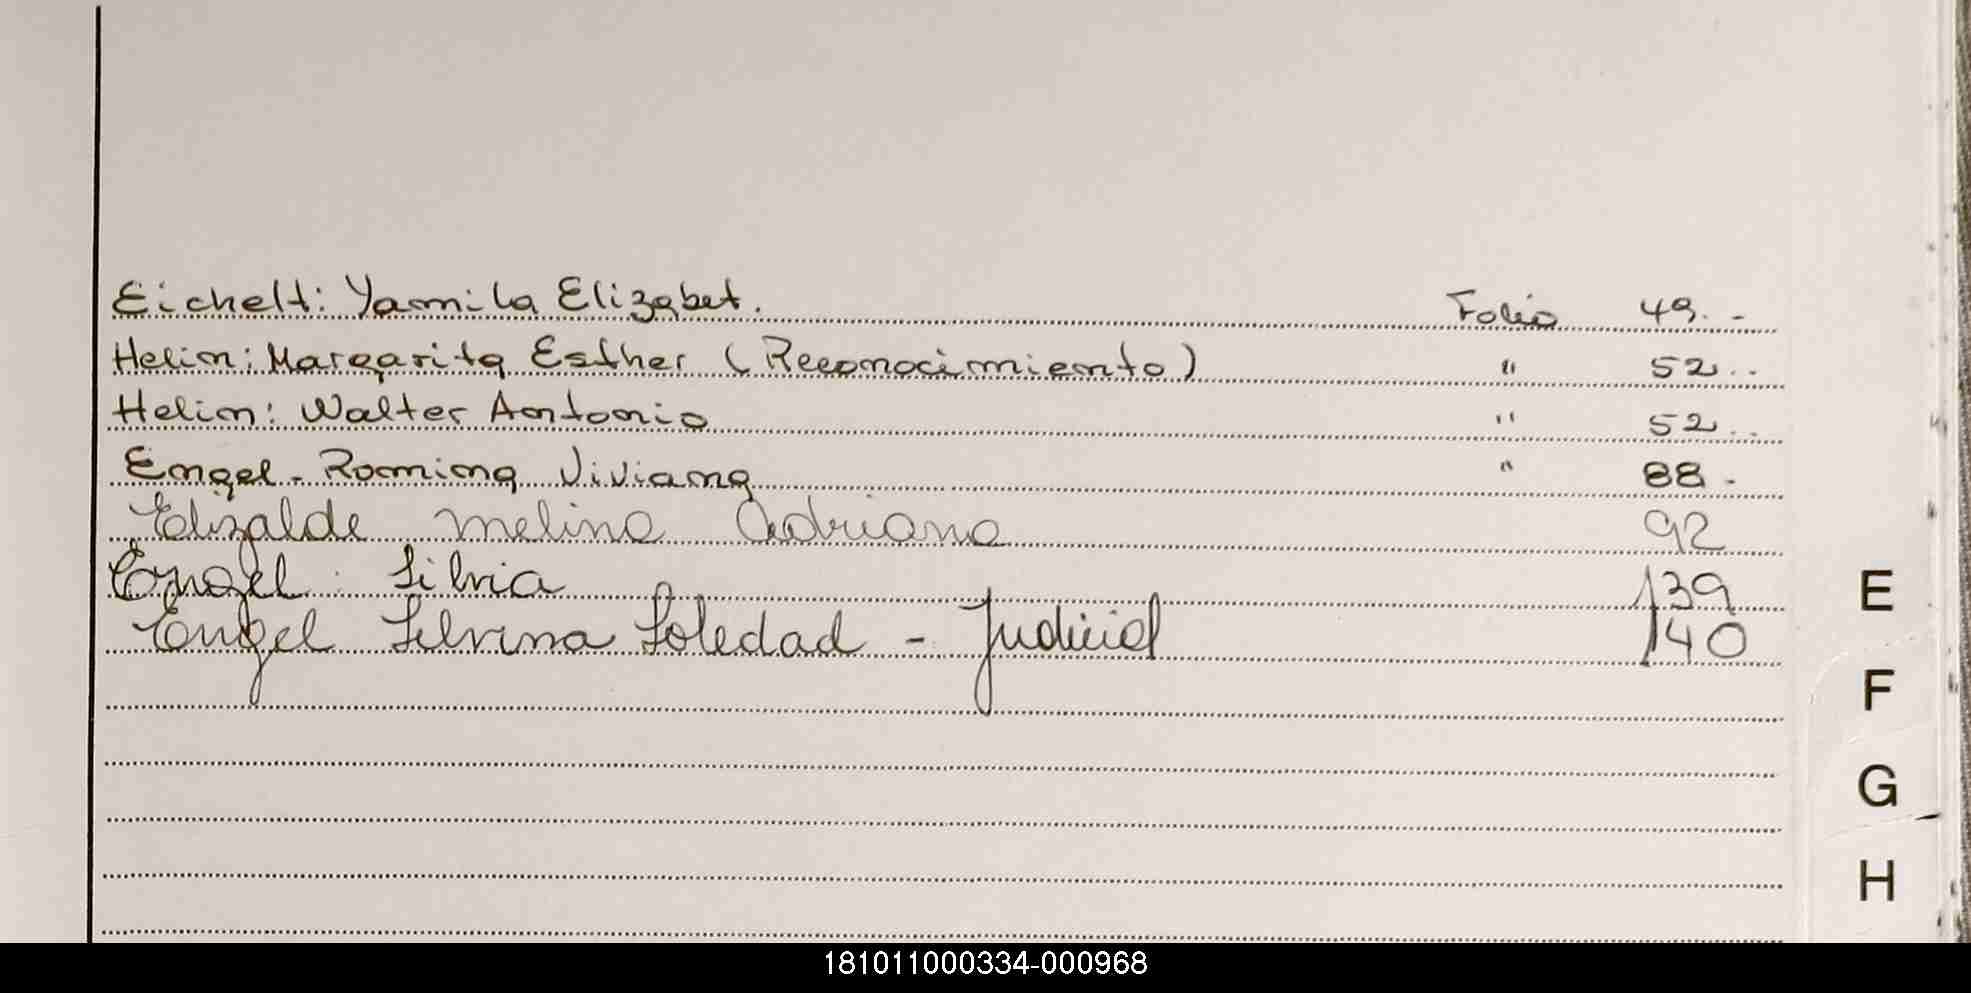 Eichelt: Yamila Elizabet. Folio 49. -
Helim: Margarita Esther (Reconocimiento) " 52..
Helim: Walter Antonio " 52..
Engel - Romina Viviana " 88.
Elizalde Melina Adriana 92
Engel: Silvia 139
Engel Silvina Soledad - Judicial 140
E
F
G
H
181011000334-000968